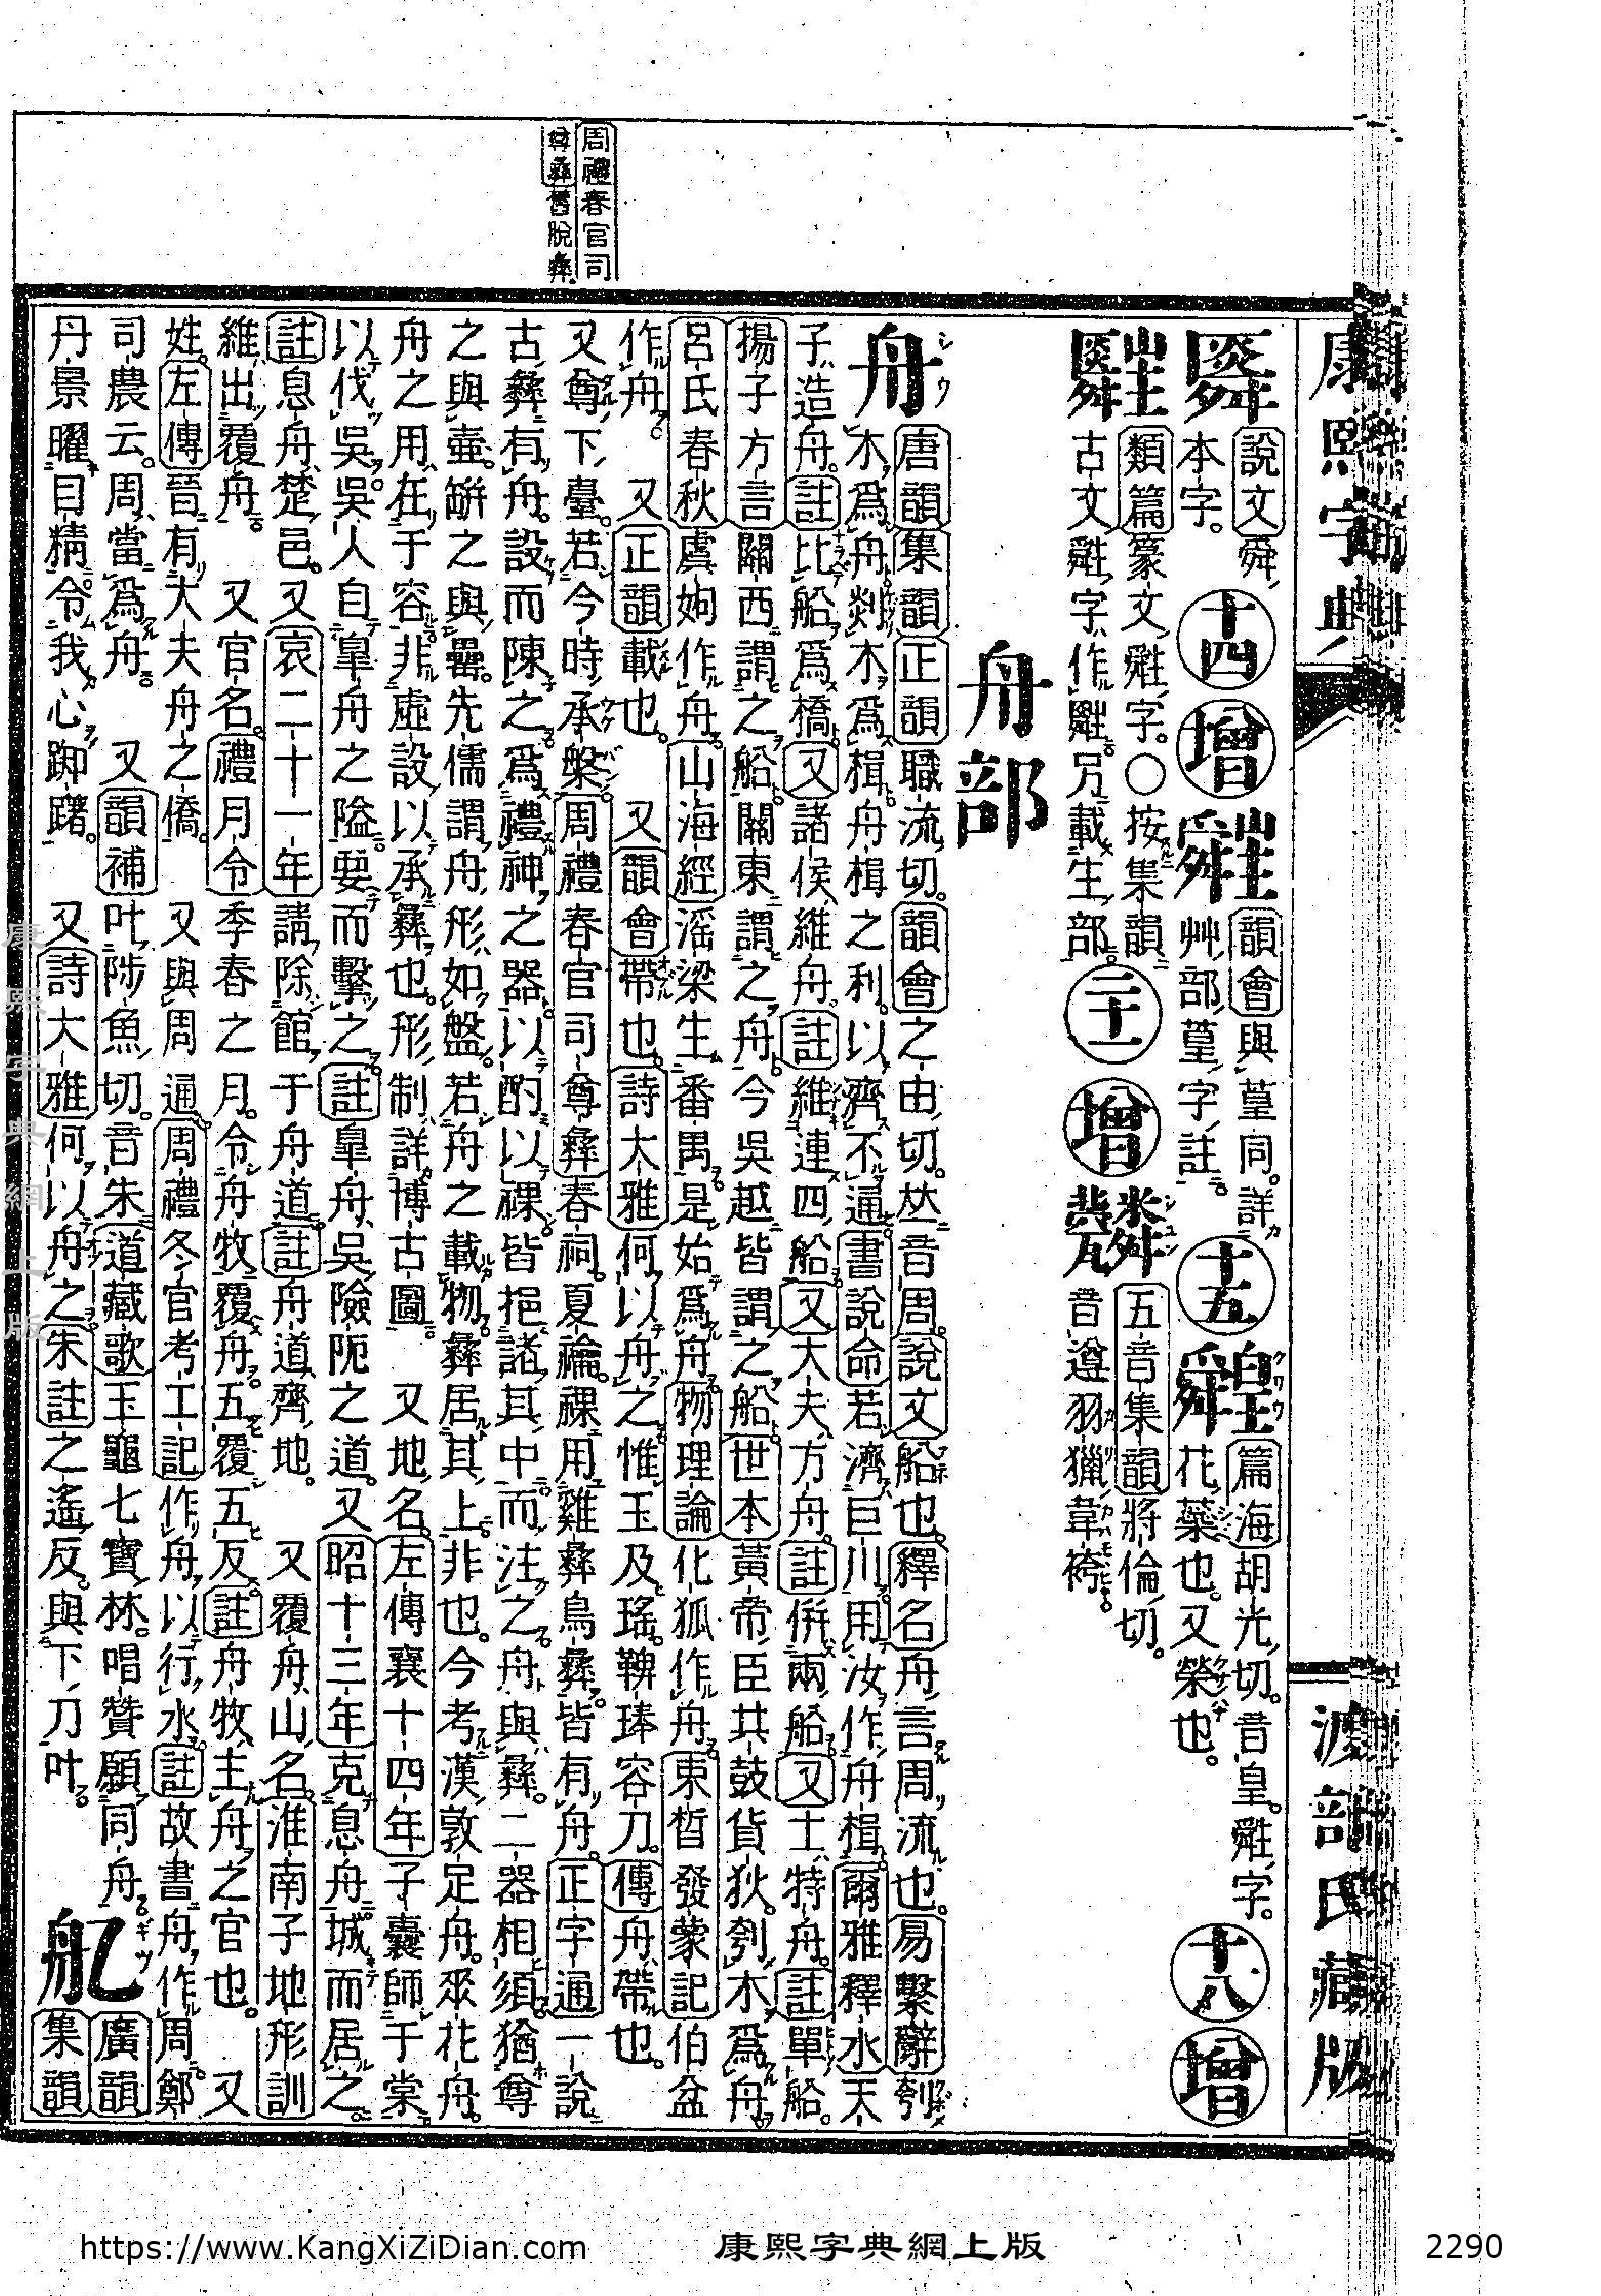 康熙字典
渡部氏藏版
周禮春官司
尊彝舊脫彝
說文舜
本字。
十四
增
韻會與葟同。詳
艸部葟字註。
十五
篇海胡光切。音皇。䑞字。
花葉也。又榮也。
十八
增
類篇篆文䑞字。○按集韻
古文䑞字作 另載生部。
二十一
增
五音集韻將倫切。
音遵羽獵韋袴。
舟部
舟唐韻集韻正韻職流切。韻會之由切。𠀤音周。說文船也。釋名舟言周流也。易繫辭刳
木爲舟剡木爲楫舟楫之利。以濟不通書說命若濟巨川用汝作舟楫爾雅釋水天
子造舟。註比船爲橋。又諸侯維舟。註維連四船。又大夫方舟。註倂兩船。又士特舟。註單船。
揚子方言關西謂之船。關東謂之舟。今吳越皆謂之船。世本黃帝臣共鼓貨狄。刳木爲舟。
呂氏春秋虞姁作舟。山海經滛梁生番禺是始爲舟。物理論化狐作舟。束晳發蒙記伯益
作舟。又正韻載也。又韻會帶也。詩大雅何以舟之惟玉及瑤。鞞琫容刀。傳舟帶也。
又尊下臺。若今時承槃。周禮春官司尊彝春祠。夏禴。祼用雞彝鳥彝皆有舟。正字通一說
古彝有舟。設而陳之。爲禮神之器。以酌以祼。皆挹諸其中而注之。舟與彝。二器相須。猶尊
之與壷。缾之與罍。先儒謂舟形如盤。若舟之載物。彝居其上。非也。今考漢敦足舟。衆花舟。
舟之用在于容非虛設以承彝也。形制詳博古圖。又地名。左傳襄十四年子囊師于棠
以伐吳。吳人自皐舟之隘。要而擊之。註皐舟吳險阨之道。又昭十三年克息舟城而居之。
註息舟楚邑。又哀二十一年請除館于舟道。註舟道齊地。又覆舟山名。淮南子地形訓
維出覆舟。又官名。禮月令季春之月。令舟牧覆舟。五覆五反。註舟牧主舟之官也。又
姓。左傳晉有大夫舟之僑。又與周通周禮冬官考工記作舟以行水。註故書舟作周鄭
司農云。周當爲舟。又韻補叶陟魚切。音朱道藏歌玉龜七寶林。唱贊願同舟。
丹景曜目精。令我心踟躇。又詩大雅何以舟之朱註之遙反。與下刀叶。
廣韻
集韻
康熙字典網上版
https://www.KangXiZiDian.com
康熙字典網上版
2290